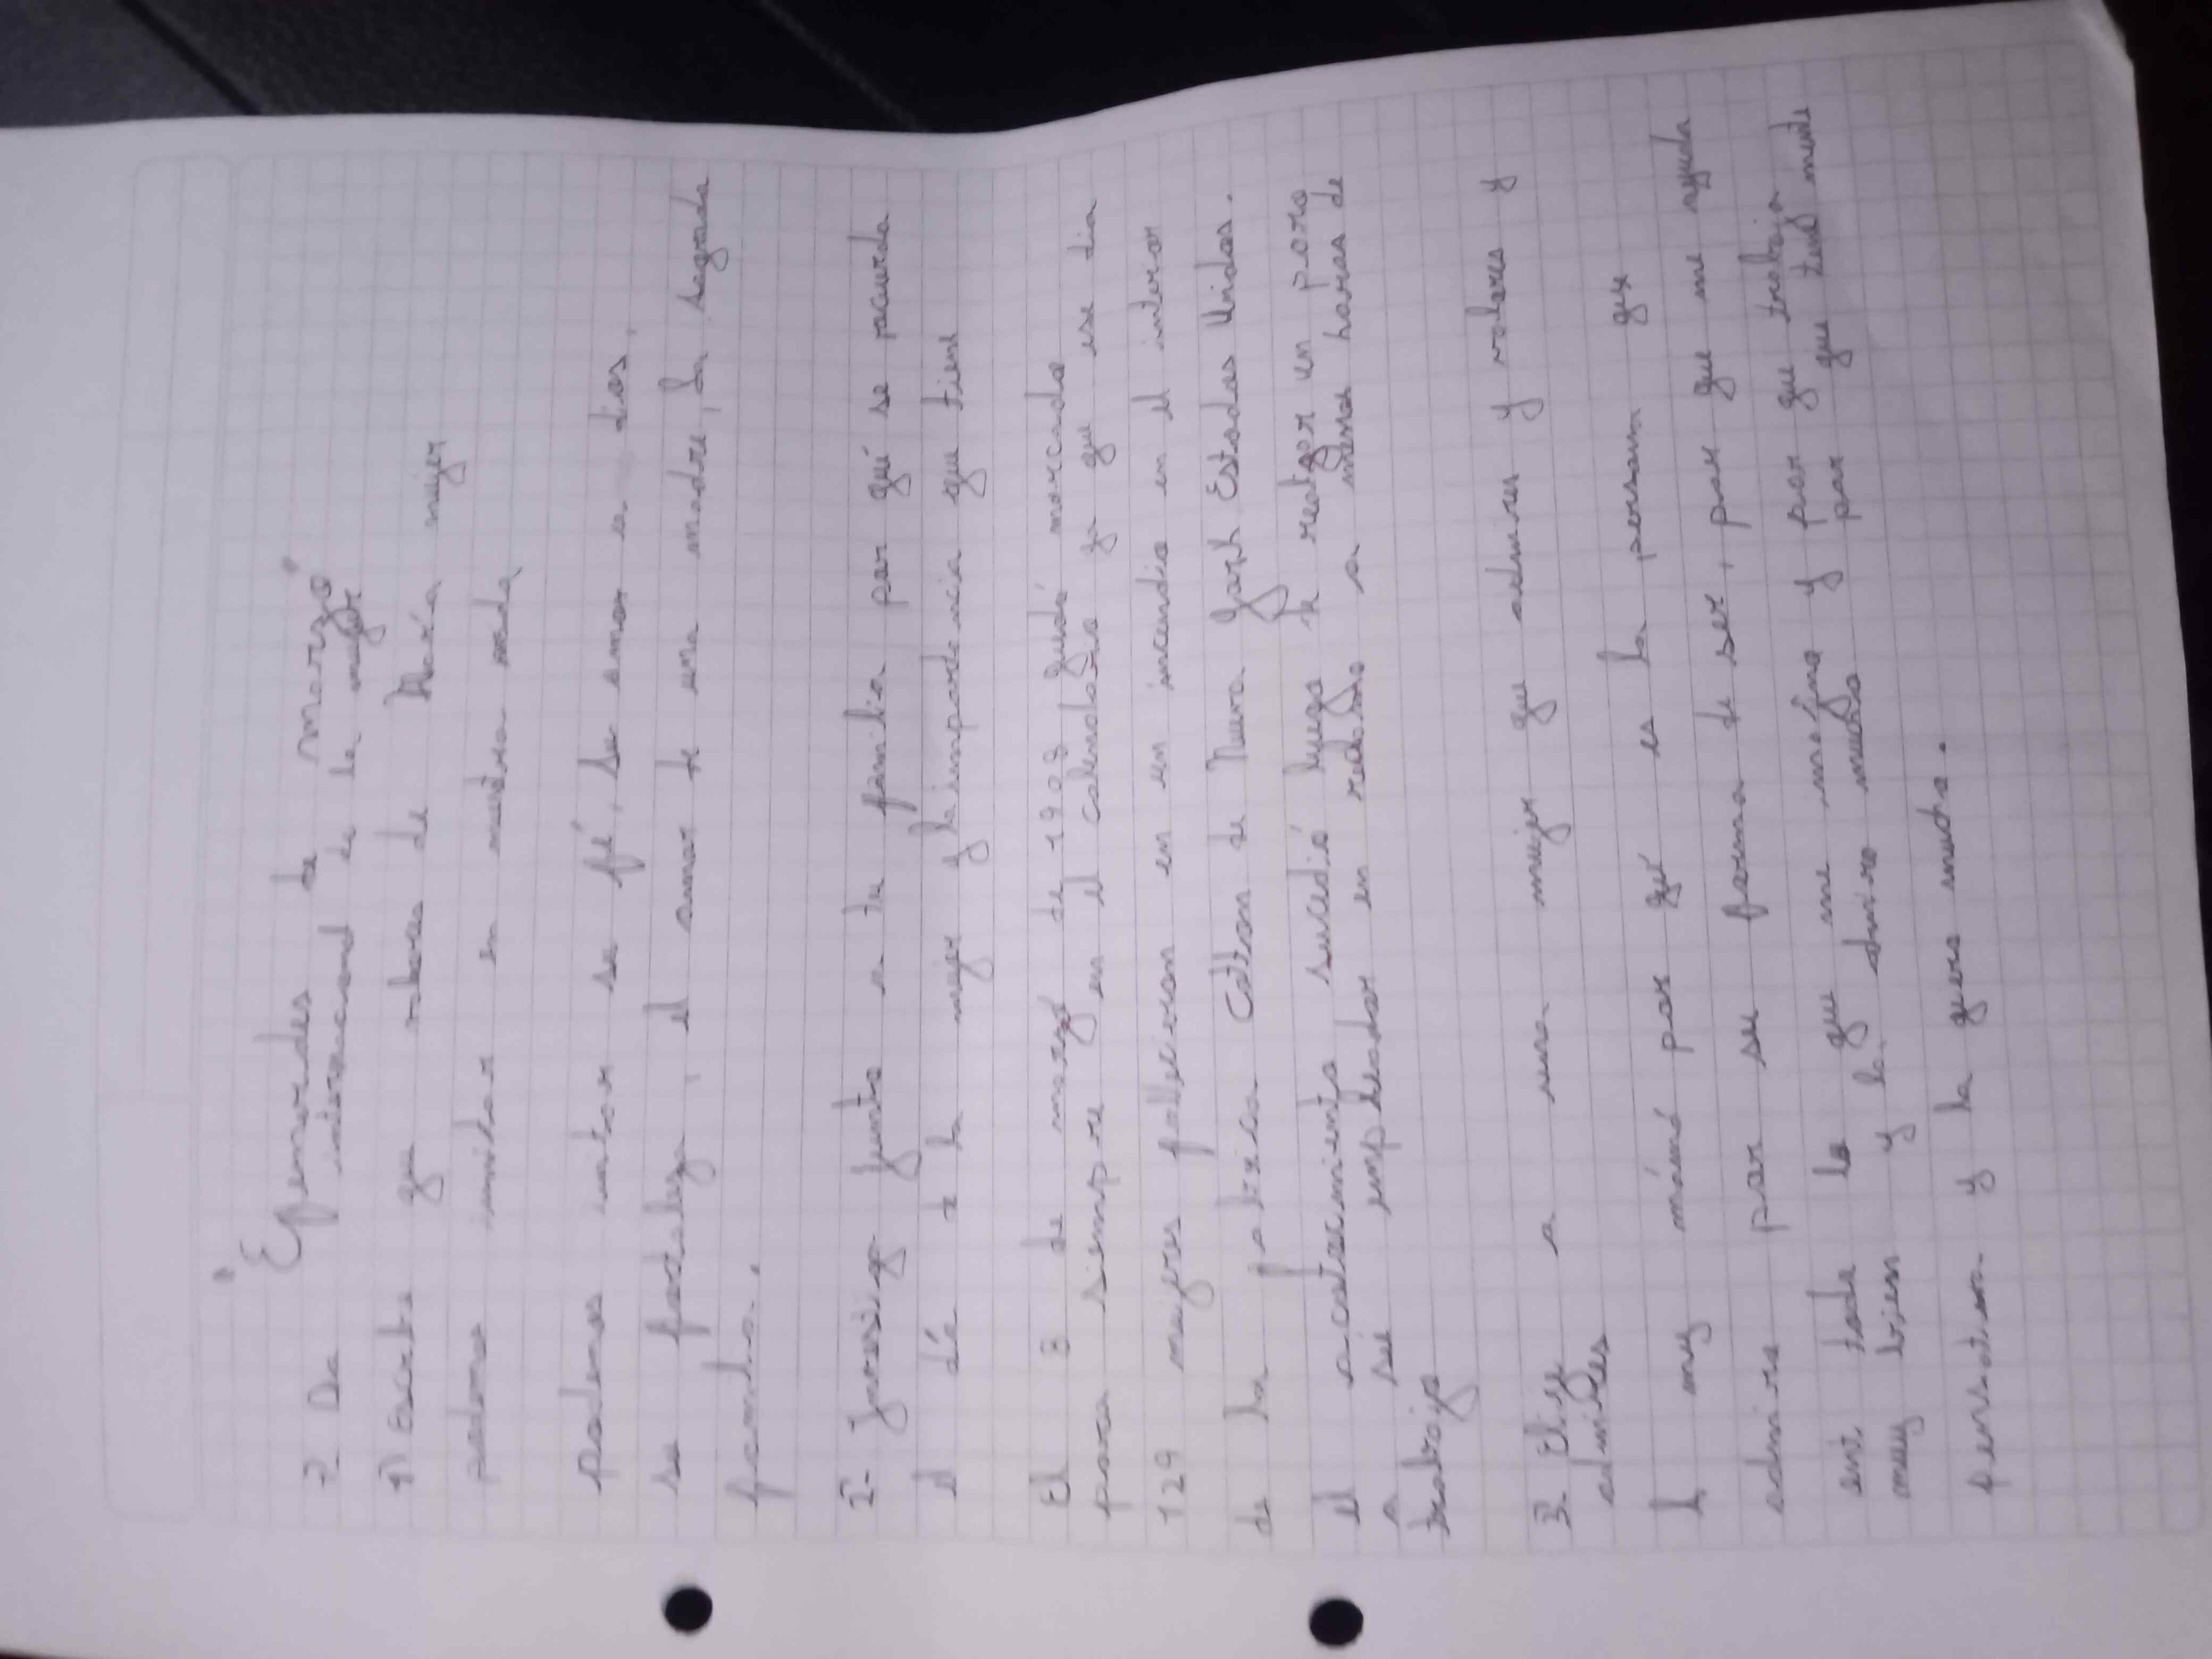 "Efemerides de marzo"
2 Da internacional de la mujer
1) Escribe que valores de María mujer
podemos imitar en nuestra vida
podemos imitar su fé, su amor a dios,
su fortaleza, el amor de una madre, la sagrada
familia.
2- Investiga junto a tu familia por qué se recuerda
el día de la mujer y la importancia que tiene
El 8 de marzo de 1908 quedó marcado
para siempre en el calendario ya que ese dia
129 mujeres fallecieron en un incendio en el interior
de la fabrica Cotton de Nueva York Estados Unidos.
el acotecimiento sucedió luego de reatzar un paro
a su empleador en reclamo a menos horas de
trabajo
3. Elije a una mujer que admires y valores y
admires
A my mámá por qué es la persona que
admiro por su forma de ser, por que me ayuda
ent toda lo que me imagino y por que trabaja
muy bien y la admiro mucho por que tiene mente
pensativa y la quero mucho.